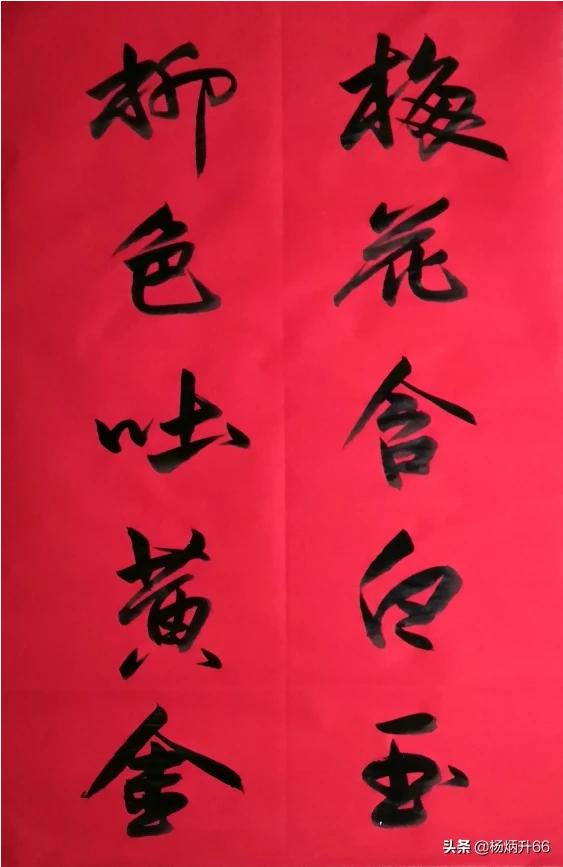 梅花含白玉
柳色吐黄金
头条 @杨炳升66